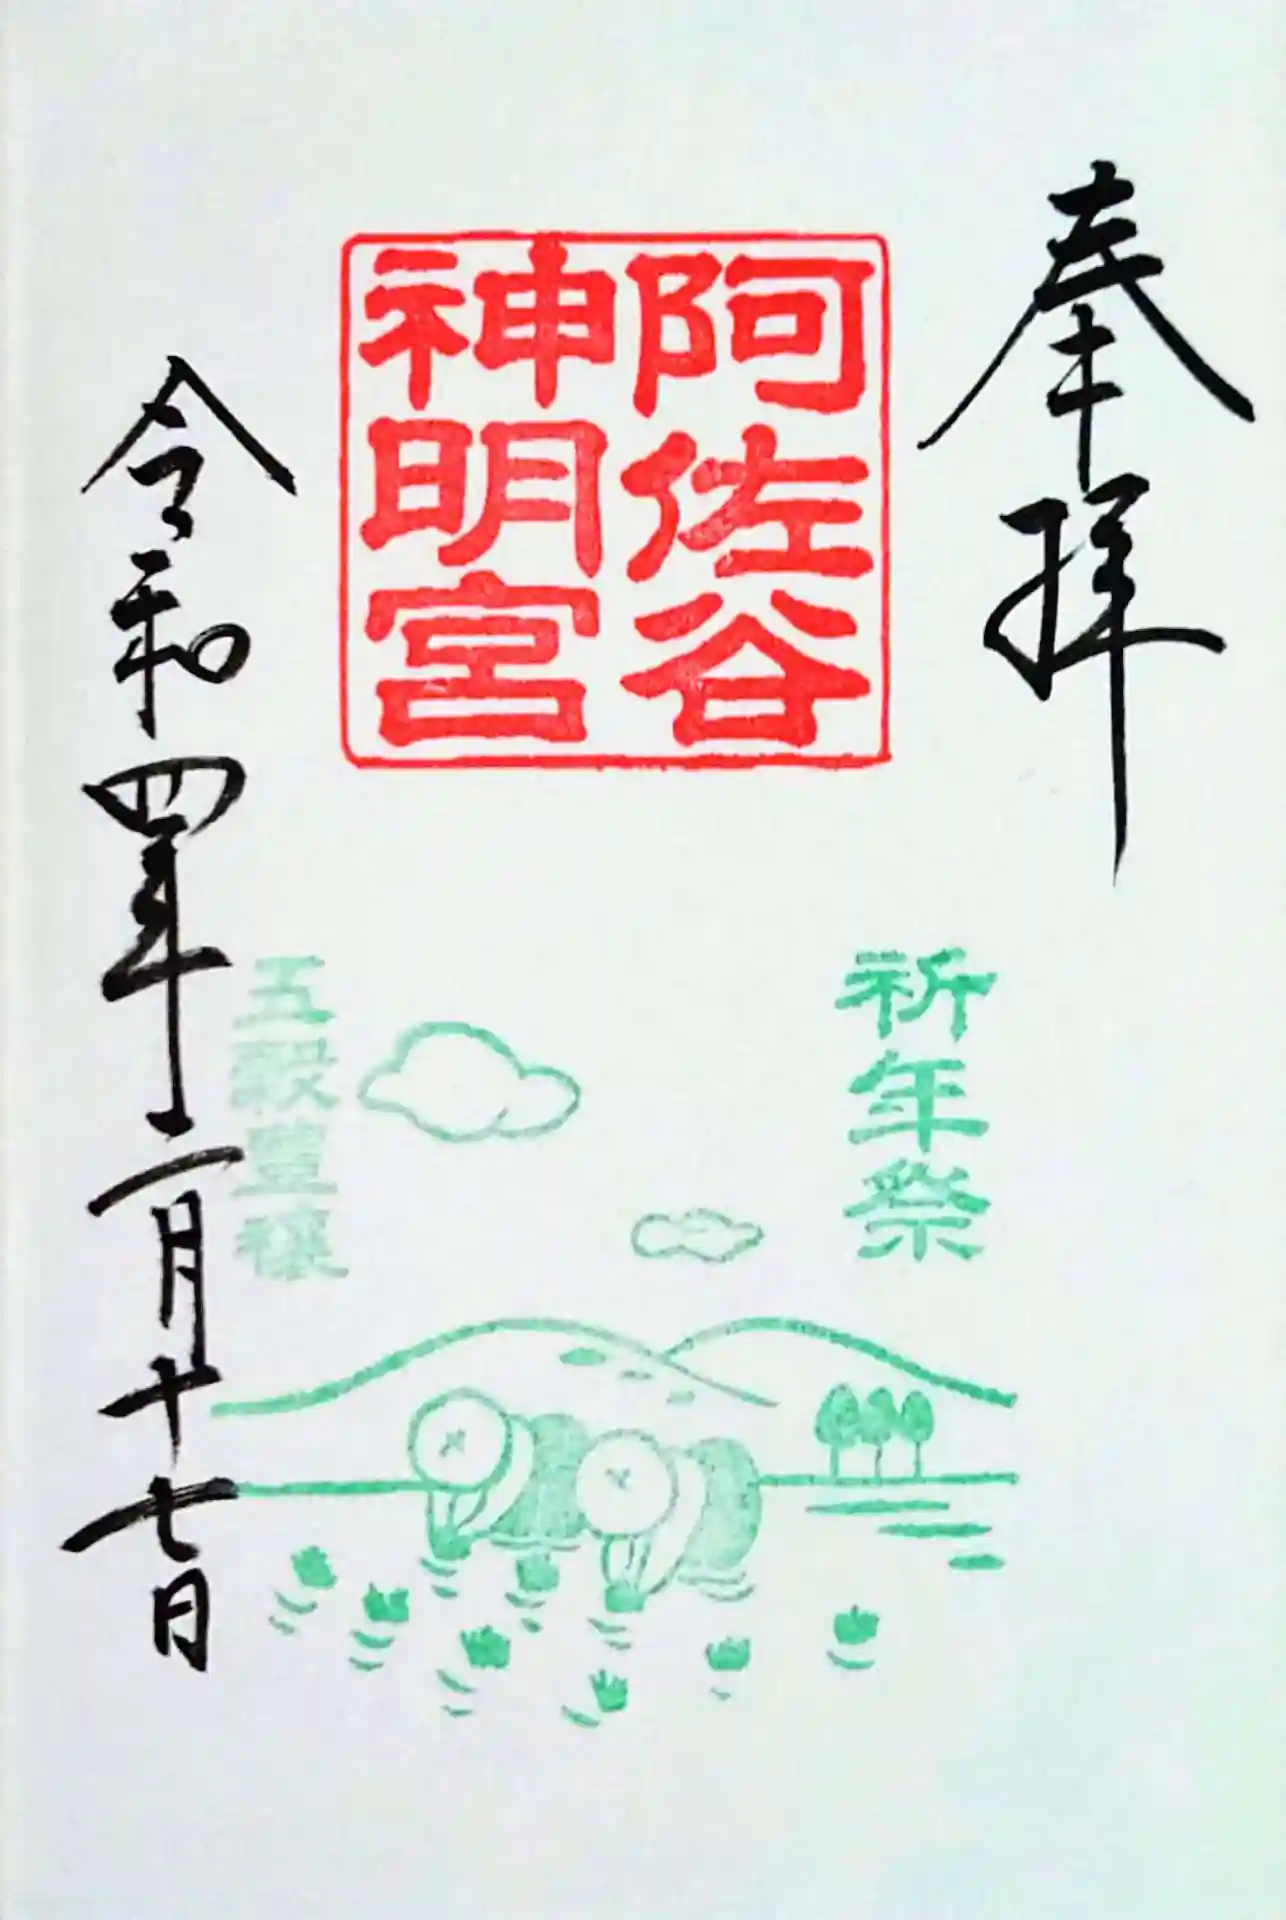 奉拝
阿佐谷
神明宮
祈年祭
五穀豊穣
令和四年二月十七日